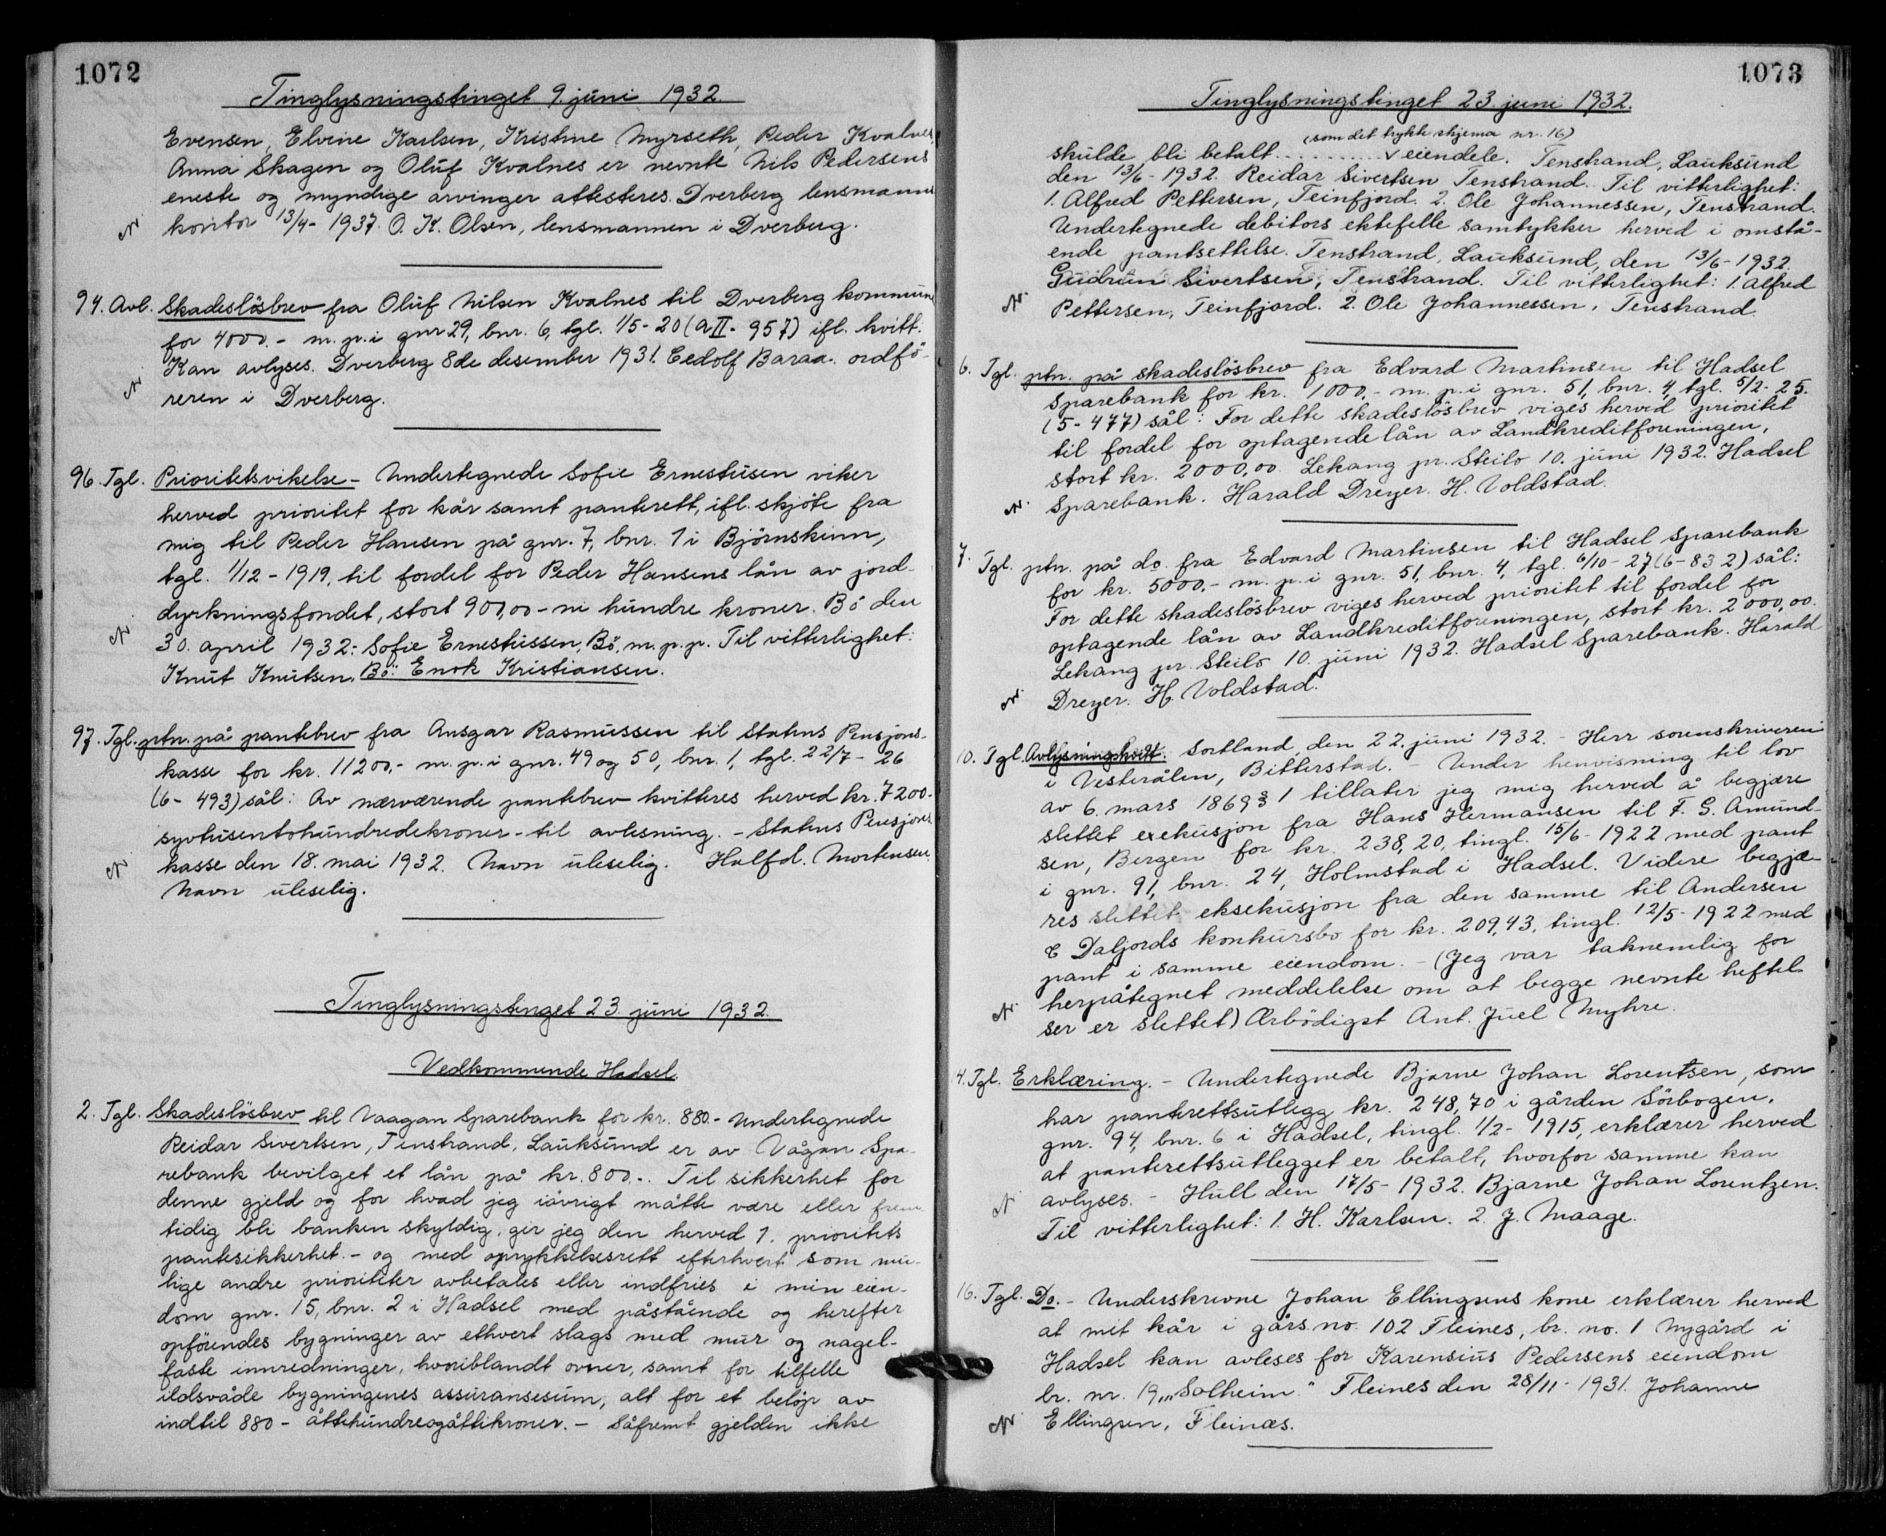 1072
Tinglysningstinget 9. juni 1932.
Evensen, Elvine Karlsen, Kristine Myrseth, Peder Kvalnes
Anna Skagen og Oluf Kvalnes er nevnte Nils Pedersens
eneste og myndige arvinger attesteres. Dverberg lensmanns
kontor 13/4-1937. O. K. Olsen, lensmannen i Dverberg.
94. Avl. Skadeslösbrev fra Oluf Nilsen Kvalnes til Dverberg kommune
for 4000.- m. p. i gnr 29, bnr. 6, tgl. 1/5-20 (A II - 957) ifl. kvitt.
Kan avlyses. Dverberg 8de desember 1931. Cedolf Baraa. ordfö-
reren i Dverberg.
96. Tgl. Prioritetsvikelse - Undertegnede Sofie Ernestusen viker
herved prioritet for kår samt panterett, ifl. skjöte fra
mig til Peder Hansen på gnr. 7, bnr. 1 i Björnskinn,
tgl. 1/12-1919, til fordel for Peder Hansens lån av jord-
dyrkningsfondet, stort 900,00 - ni hundre kroner. Bö den
30. april 1932: Sofie Ernestussen, Bö, m. p. p. Til vitterlighet:
Knut Knutsen, Bö: Enok Kristiansen.
97. Tgl. ptn. på pantebrev fra Ansgar Rasmussen til Statens Pensjons-
kasse for kr. 11200,- m. p. i gnr. 49 og 50, bnr. 1, tgl. 22/7-26
(6-493) sål: Av nærværende pantebrev kvitteres herved kr. 7200.-
syvtusentohundredekroner - til avlesning. - Statens Pensjons
kasse den 18. mai 1932. Navn uleselig. Halfd. Mortensen.
Navn uleselig.
Tinglysningstinget 23. juni 1932.
Vedkommende Hadsel.
2. Tgl. Skadeslösbrev til Vaagan Sparebank for kr. 880.- Undertegnede
Reidar Sivertsen, Tenstrand, Lauksund er av Vågan Spa-
rebank bevilget et lån på kr. 800.-. Til sikkerhet for
denne gjeld og for hvad jeg iövrigt måtte være eller frem
tidig bli banken skyldig, gir jeg den herved 1. prioritets
pantesikkerhet - og med oprykkelsesrett efterhvert som mu-
lige andre prioriteter avbetales eller indfries i min eien-
dom gnr. 15, bnr. 2 i Hadsel med påstående og herefter
opförendes bygninger av ethvert slags med mur og nagel-
faste innredninger, hvoriblandt ovner, samt for tilfelle
ildsvåde bygningenes assuransesum, alt for et belöp av
indtil 880 - åttehundreogåttikroner. - Såfremt gjelden ikke
1073
Tinglysningstinget 23. juni 1932.
(som det trykte skjema nr. 16)
skulde bli betalt .......... v eiendele. Tenstrand, Lauksund
den 13/6-1932. Reidar Sivertsen Tenstrand. Til vitterlighet:
1. Alfred Pettersen, Teinfjord. 2. Ole Johannessen, Tenstrand.
Undertegnede debitors ektefelle samtykker herved i omstå-
ende pantsettelse. Tenstrand, Lauksund, den 13/6-1932.
Gudrun Sivertsen, Tenstrand. Til vitterlighet: 1. Alfred
Pettersen, Teinfjord. 2. Ole Johannessen, Tenstrand.
6. Tgl. ptn. på skadeslösbrev fra Edvard Martinsen til Hadsel
Sparebank for kr. 1000,- m. p. i gnr. 51, bnr. 4, tgl. 5/2-25.
(5-477) sål: For dette skadeslösbrev viges herved prioritet
til fordel for optagende lån av Landkreditforeningen,
stort kr. 2000,00. Lekang pr. Steilo 10. juni 1932. Hadsel
Sparebank. Harald Dreyer. H. Voldstad.
7. Tgl. ptn. på do. fra Edvard Martinsen til Hadsel Sparebank
for kr. 5000,- m. p. i gnr. 51, bnr. 4, tgl. 6/10-27 (6-832) sål:
For dette skadeslösbrev viges herved prioritet til fordel for
optagende lån av Landkreditforeningen, stort kr. 2000,00.
Lekang pr. Steilo 10. juni 1932. Hadsel Sparebank. Harald
Dreyer. H. Voldstad.
10. Tgl. Avlysningskvitt. Sortland, den 22. juni 1932. - Herr sorenskriveren
i Vesterålen, Bitterstad. - Under henvisning til lov
av 6. mars 1869 § 1 tillater jeg mig herved å begjære
slettet exekusjon fra Hans Hermansen til F. G. Amund-
sen, Bergen for kr. 238,20, tingl. 15/6-1922 med pant
i gnr. 91, bnr. 24, Holmstad i Hadsel. Videre begjæ-
res slettet eksekusjon fra den samme til Andersen
& Dafjords konkursbo for kr. 209,43, tingl. 12/5-1922 med
pant i samme eiendom. - (Jeg var taknemlig for
herpåtegnet meddelelse om at begge nevnte heftel-
ser er slettet) Ærbödigst Ant. Juel Myhre.
4. Tgl. Erklæring. - Undertegnede Bjarne Johan Lorentsen, som
har panterettsutlegg kr. 248,70 i gården Sörbogen,
gnr. 94, bnr. 6 i Hadsel, tingl. 1/2-1915, erklærer herved
at panterettsutlegget er betalt, hvorfor samme kan
avlyses. - Hull den 17/5-1932. Bjarne Johan Lorentzen.
Til vitterlighet: 1. H. Karlsen. 2. J. Maage.
16. Tgl. Do. - Underskrevne Johan Ellingsens kone erklærer herved
at mit kår i gårs no. 102 Fleines, br. no. 1 Nygård i
Hadsel kan avleses for Karensius Pedersens eiendom
br. nr. 19, "Solheim." Fleines den 28/11-1931. Johanne
Ellingsen, Fleinæs.